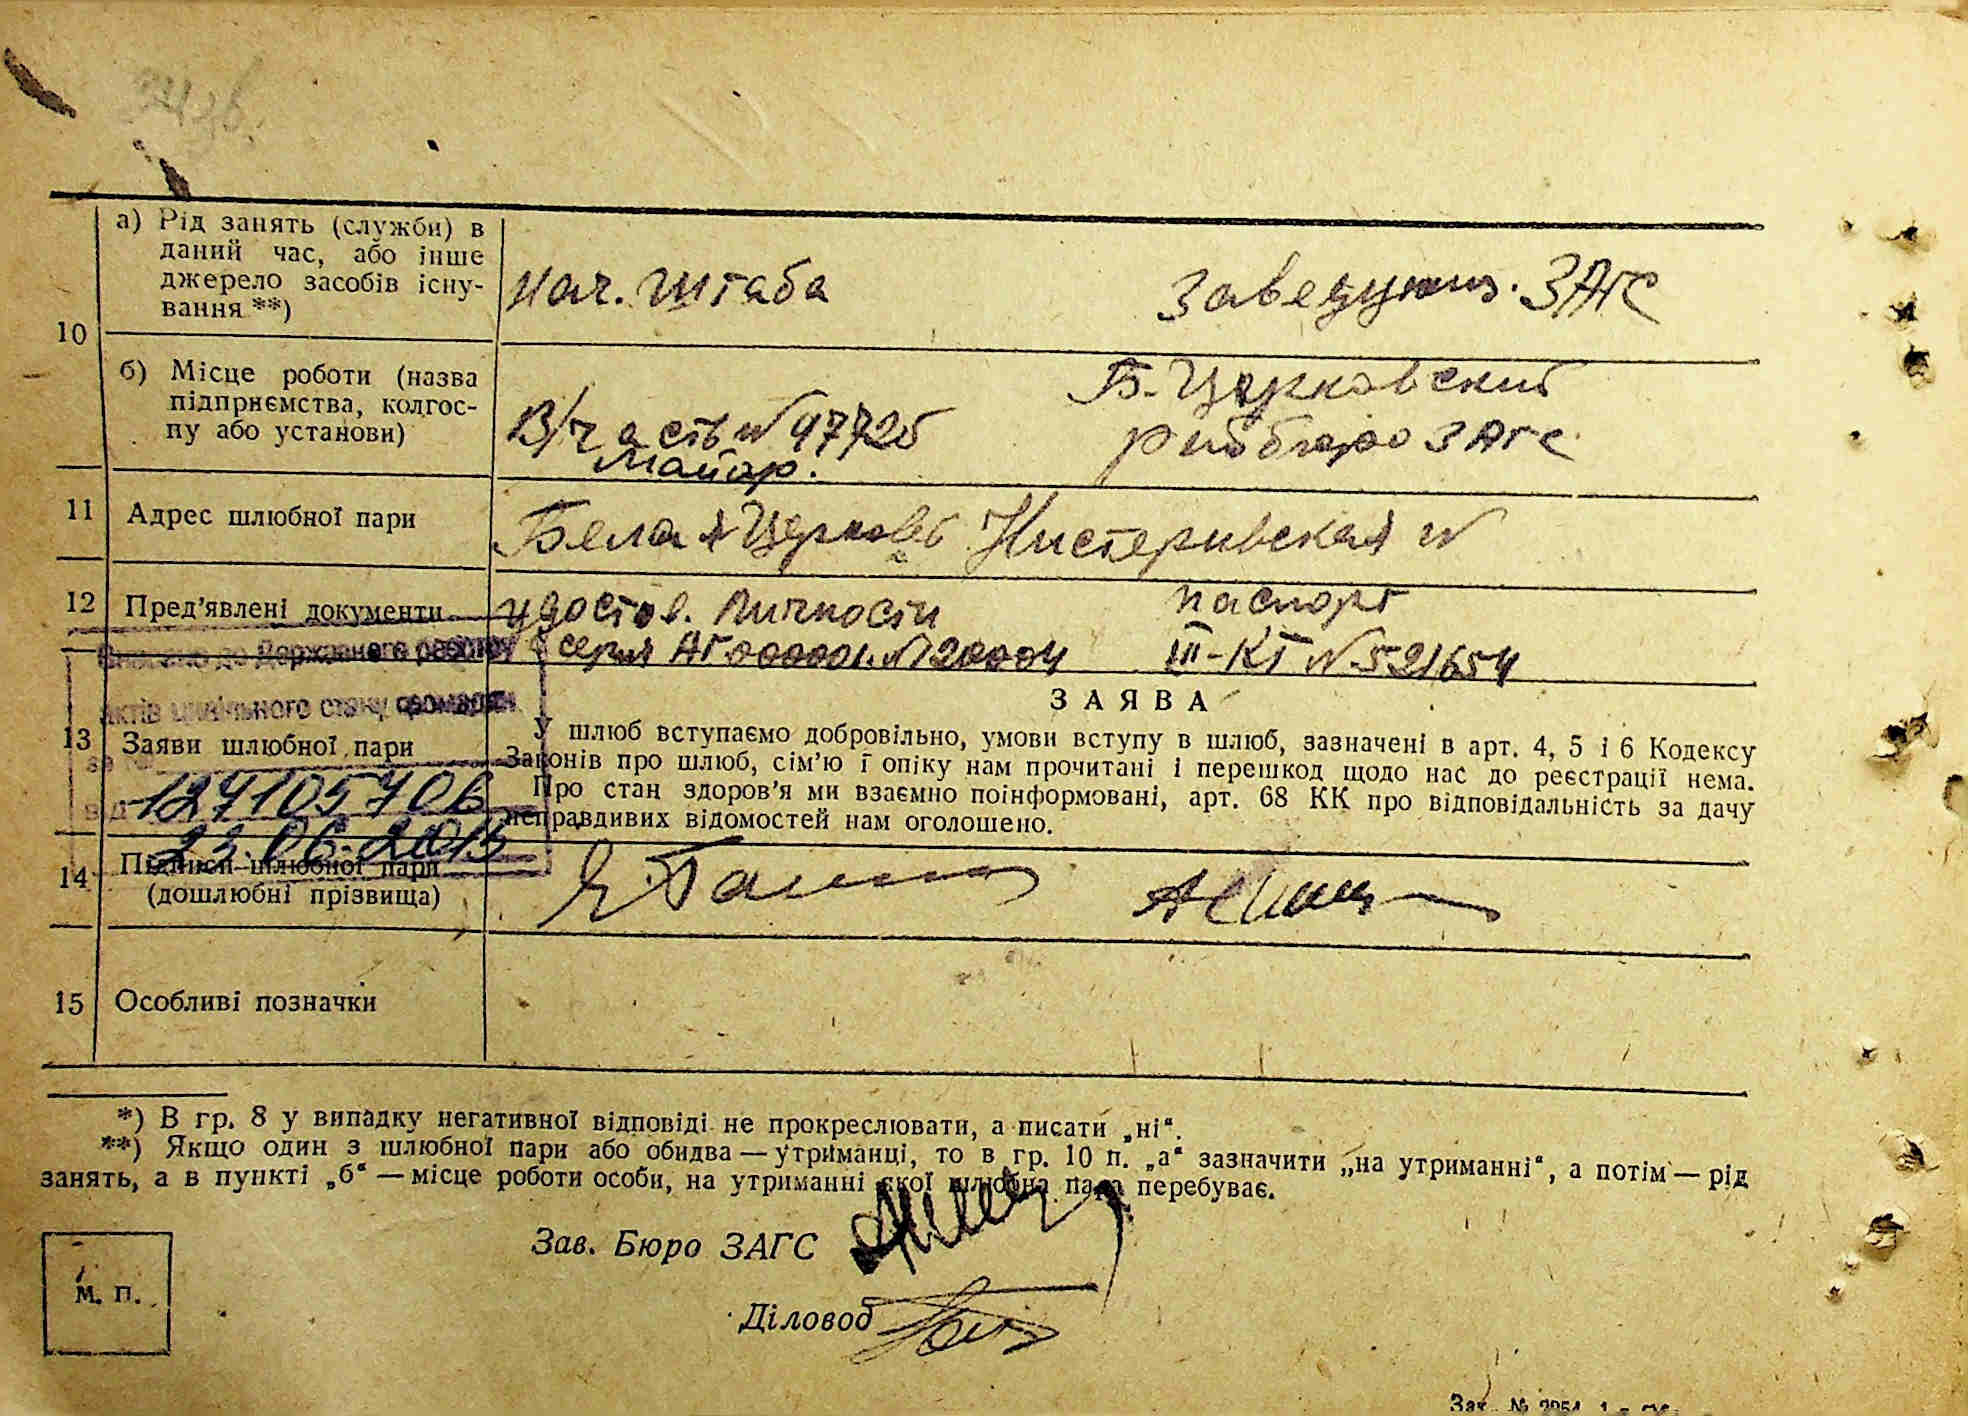 а) Рід занять (служби) в
даний час, або інше
джерело засобів існу-
вання **)
нач. штаба
заведующ. ЗАГС
10
б) Місце роботи (назва
підприємства, колгос-
пу або установи)
В/часть №97726
майор.
Б. Церковский
райбюро ЗАГС
11
Адрес шлюбної пари
Белая Церковь №
12
Пред'явлені документи
удостов. личности
серия АГ 000001. №120004
паспорт
III-КТ №521654
Внесено до Державного реєстру
актів цивільного стану громадян
13
Заяви шлюбної пари
за №
127105706
від
23.06.2015
ЗАЯВА
У шлюб вступаємо добровільно, умови вступу в шлюб, зазначені в арт. 4, 5 і 6 Кодексу
Законів про шлюб, сім'ю ї опіку нам прочитані і перешкод щодо нас до реєстрації нема.
Про стан здоров'я ми взаємно поінформовані, арт. 68 КК про відповідальність за дачу
неправдивих відомостей нам оголошено.
14
Підписи шлюбної пари
(дошлюбні прізвища)
15
Особливі позначки
*) В гр. 8 у випадку негативної відповіді не прокреслювати, а писати „ні“.
**) Якщо один з шлюбної пари або обидва — утриманці, то в гр. 10 п. „а“ зазначити „на утриманні“, а потім — рід
занять, а в пункті „б“ — місце роботи особи, на утриманні якої шлюбна пара перебуває.
Зав. Бюро ЗАГС
Діловод
М. П.
Зах. № 2954